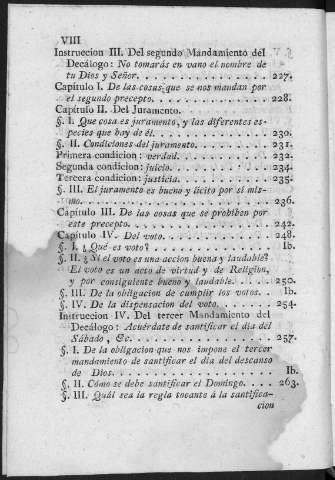 VIII
Instruccion III. Del segundo Mandamiento del
Decálogo: No tomarás en vano el nombre de
tu Dios y Señor. . . . . . . . . . . . . . 227.
Capítulo I. De las cosas que se nos mandan por
el segundo precepto. . . . . . . . . . . . 228.
Capítulo II. Del Juramento.
§. I. Que cosa es juramento, y las diferentes es-
pecies que hay de él. . . . . . . . . . . . 230.
§. II. Condiciones del juramento. . . . . . . 231.
Primera condicion: verdad. . . . . . . . . . 232.
Segunda condicion: juicio. . . . . . . . . . 234.
Tercera condicion: justicia. . . . . . . . . 235.
§. III. El juramento es bueno y lícito por sí mis-
mo. . . . . . . . . . . . . . . . . . . . 236.
Capítulo III. De las cosas que se prohiben por
este precepto. . . . . . . . . . . . . . . 242.
Capítulo IV. Del voto. . . . . . . . . . . . 248.
§. I. ¿Qué es voto? . . . . . . . . . . . . Ib.
§. II. ¿Si el voto es una accion buena y laudable?
El voto es un acto de virtud y de Religion,
y por consiguiente bueno y laudable. . . . . 250.
§. III. De la obligacion de cumplir los votos. . Ib.
§. IV. De la dispensacion del voto. . . . . . 254.
Instruccion IV. Del tercer Mandamiento del
Decálogo: Acuérdate de santificar el dia del
Sábado, &c. . . . . . . . . . . . . . . . 257.
§. I. De la obligacion que nos impone el tercer
mandamiento de santificar el dia del descanso
de Dios. . . . . . . . . . . . . . . . . . Ib.
§. II. Cómo se debe santificar el Domingo. . . . 263.
§. III. Quál sea la regla tocante á la santifica-
cion